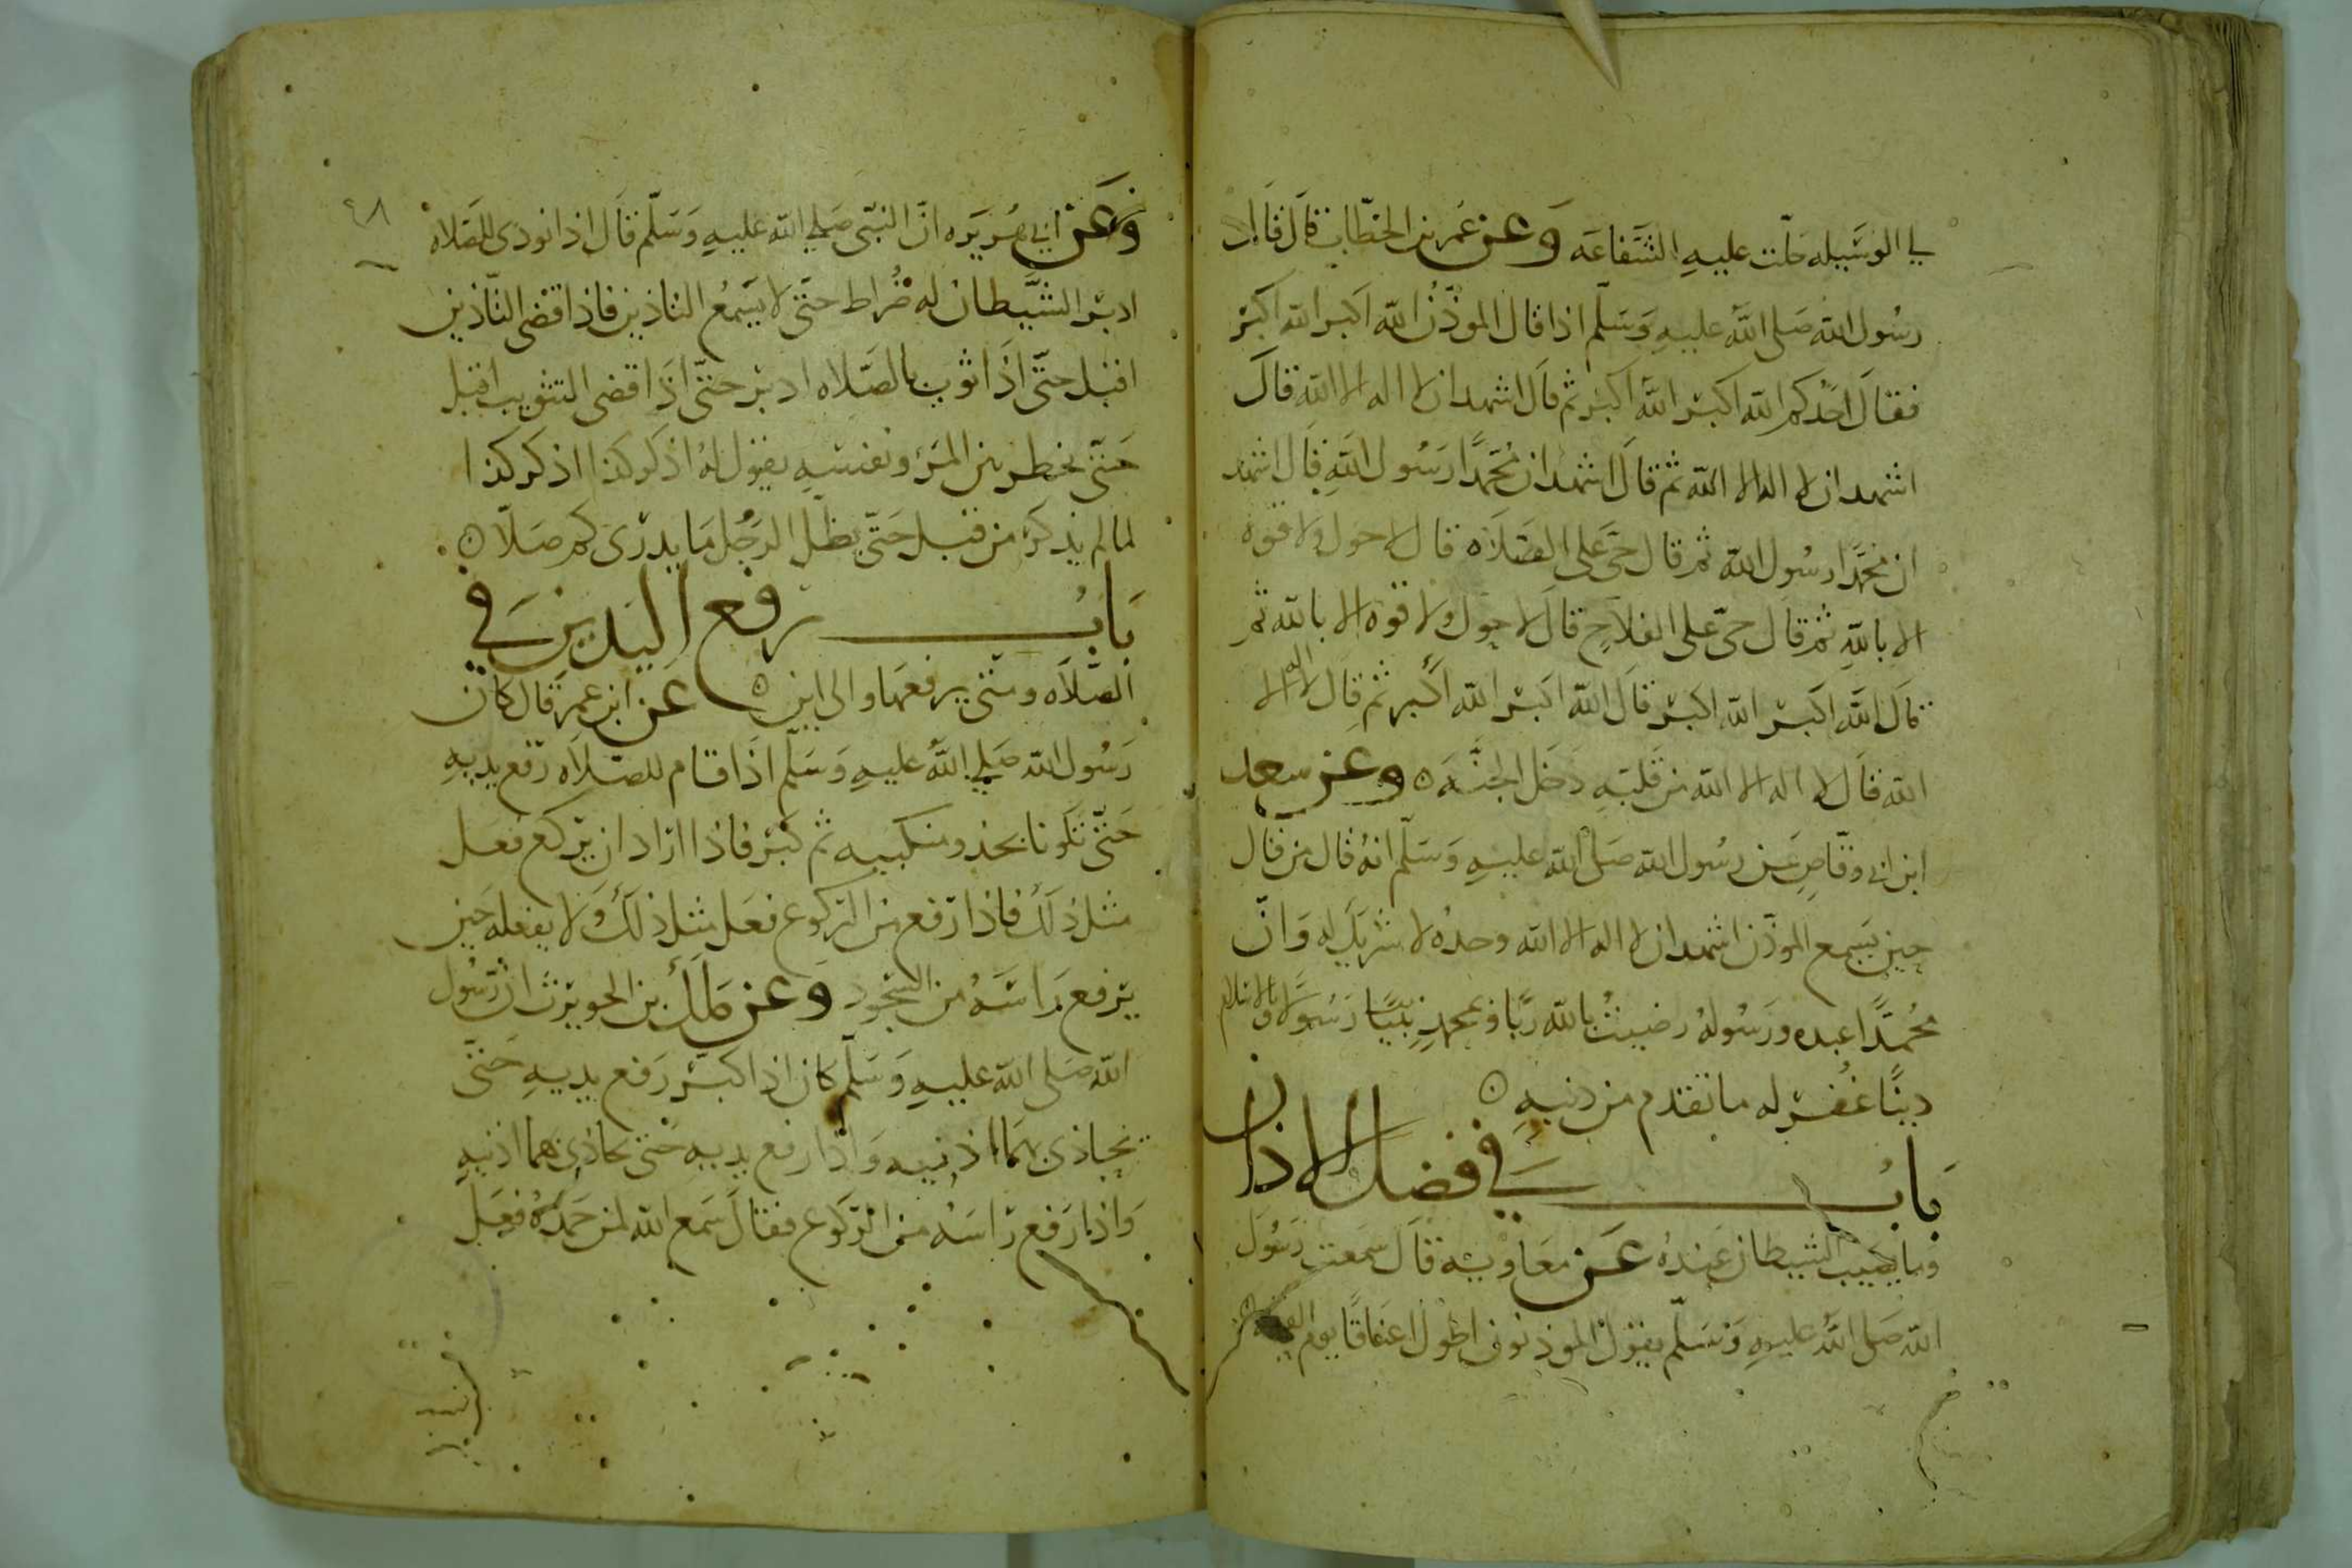 لي الوسيله حلت عليه الشفاعه وعن عمر بن الخطاب قال قال
رسول الله صلى الله عليه وسلم اذا قال الموذن الله اكبر الله اكبر
فقال احدكم الله اكبر الله اكبر ثم قال اشهد ان لا اله الا الله قال
اشهد ان لا اله الا الله ثم قال اشهد ان محمدا رسول الله قال اشهد
ان محمدا رسول الله ثم قال حي على الصلاه قال لا حول ولا قوه
الا بالله ثم قال حي على الفلاح قال لا حول ولا قوه الا بالله ثم
قال الله اكبر الله اكبر قال الله اكبر الله اكبر ثم قال لا اله الا
الله قال لا اله الا الله من قلبه دخل الجنه ٥ وعن سعد
ابن ابي وقاص عن رسول الله صلى الله عليه وسلم انه قال من قال
حين يسمع الموذن اشهد ان لا اله الا الله وحده لا شريك له وان
محمدا عبده ورسوله رضيت بالله ربا وبمحمد نبيا رسولا وبالاسلام
دينا غفر له ما تقدم من ذنبه ٥
باب في فضل الاذان
وما يصيب الشيطان عنده عن معاويه قال سمعت رسول
الله صلى الله عليه وسلم يقول الموذنون اطول اعناقا يوم القيمه
٤٨
وعن ابي هريره ان النبي صلى الله عليه وسلم قال اذا نودى للصلاه
ادبر الشيطان له ضراط حتى لا يسمع التاذين فاذا قضى التاذين
اقبل حتى اذا ثوب بالصلاه ادبر حتى اذا قضى التثويب اقبل
حتى يخطر بين المرء ونفسه يقول له اذكر كذا اذكر كذا
لما لم يذكر من قبل حتى يظل الرجل ما يدرى كم صلا ٥
باب رفع اليدين في
الصلاه ومتى يرفعهما والى اين ٥ عن ابن عمر قال كان
رسول الله صلى الله عليه وسلم اذا قام للصلاه رفع يديه
حتى تكونا بحذو منكبيه ثم كبر فاذا اراد ان يركع فعل
مثل ذلك فاذا رفع من الركوع فعل مثل ذلك ولا يفعله حين
يرفع راسه من السجود وعن ملك بن الحويرث ان رسول
الله صلى الله عليه وسلم كان اذا كبر رفع يديه حتى
يحاذى بهما اذنيه واذا رفع يديه حتى يحاذى بهما اذنيه
واذا رفع راسه من الركوع فقال سمع الله لمن حمده فعل